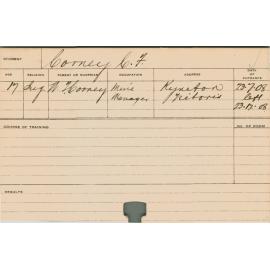 STUDENT Corney C. F.
AGE RELIGION PARENT OR GUARDIAN OCCUPATION ADDRESS DATE OF ENTRANCE
17 W Corney Mine Kyneton 23-7-08
Manager Victoria left
23-12-08
COURSE OF TRAINING NO. OR ROOM
RESULTS